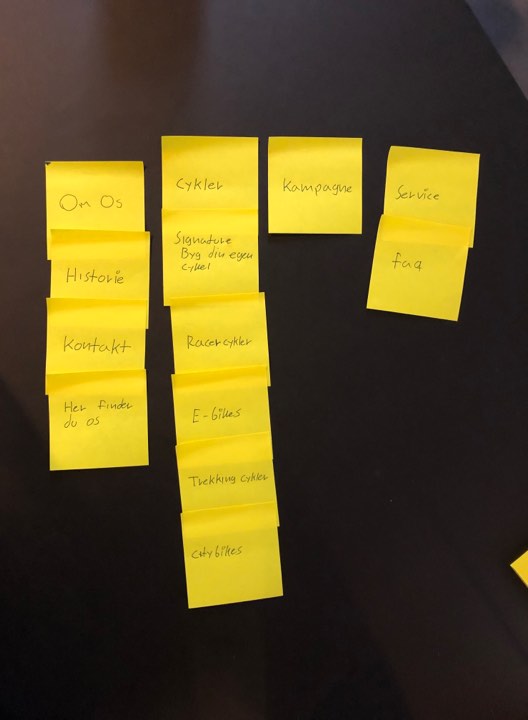 Om Os
Historie
Kontakt
Her finder
du os
Cykler
Signature
Byg din egen
cykel
Racercykler
E-bikes
Trekking cykler
citybikes
Kampagne
Service
faq